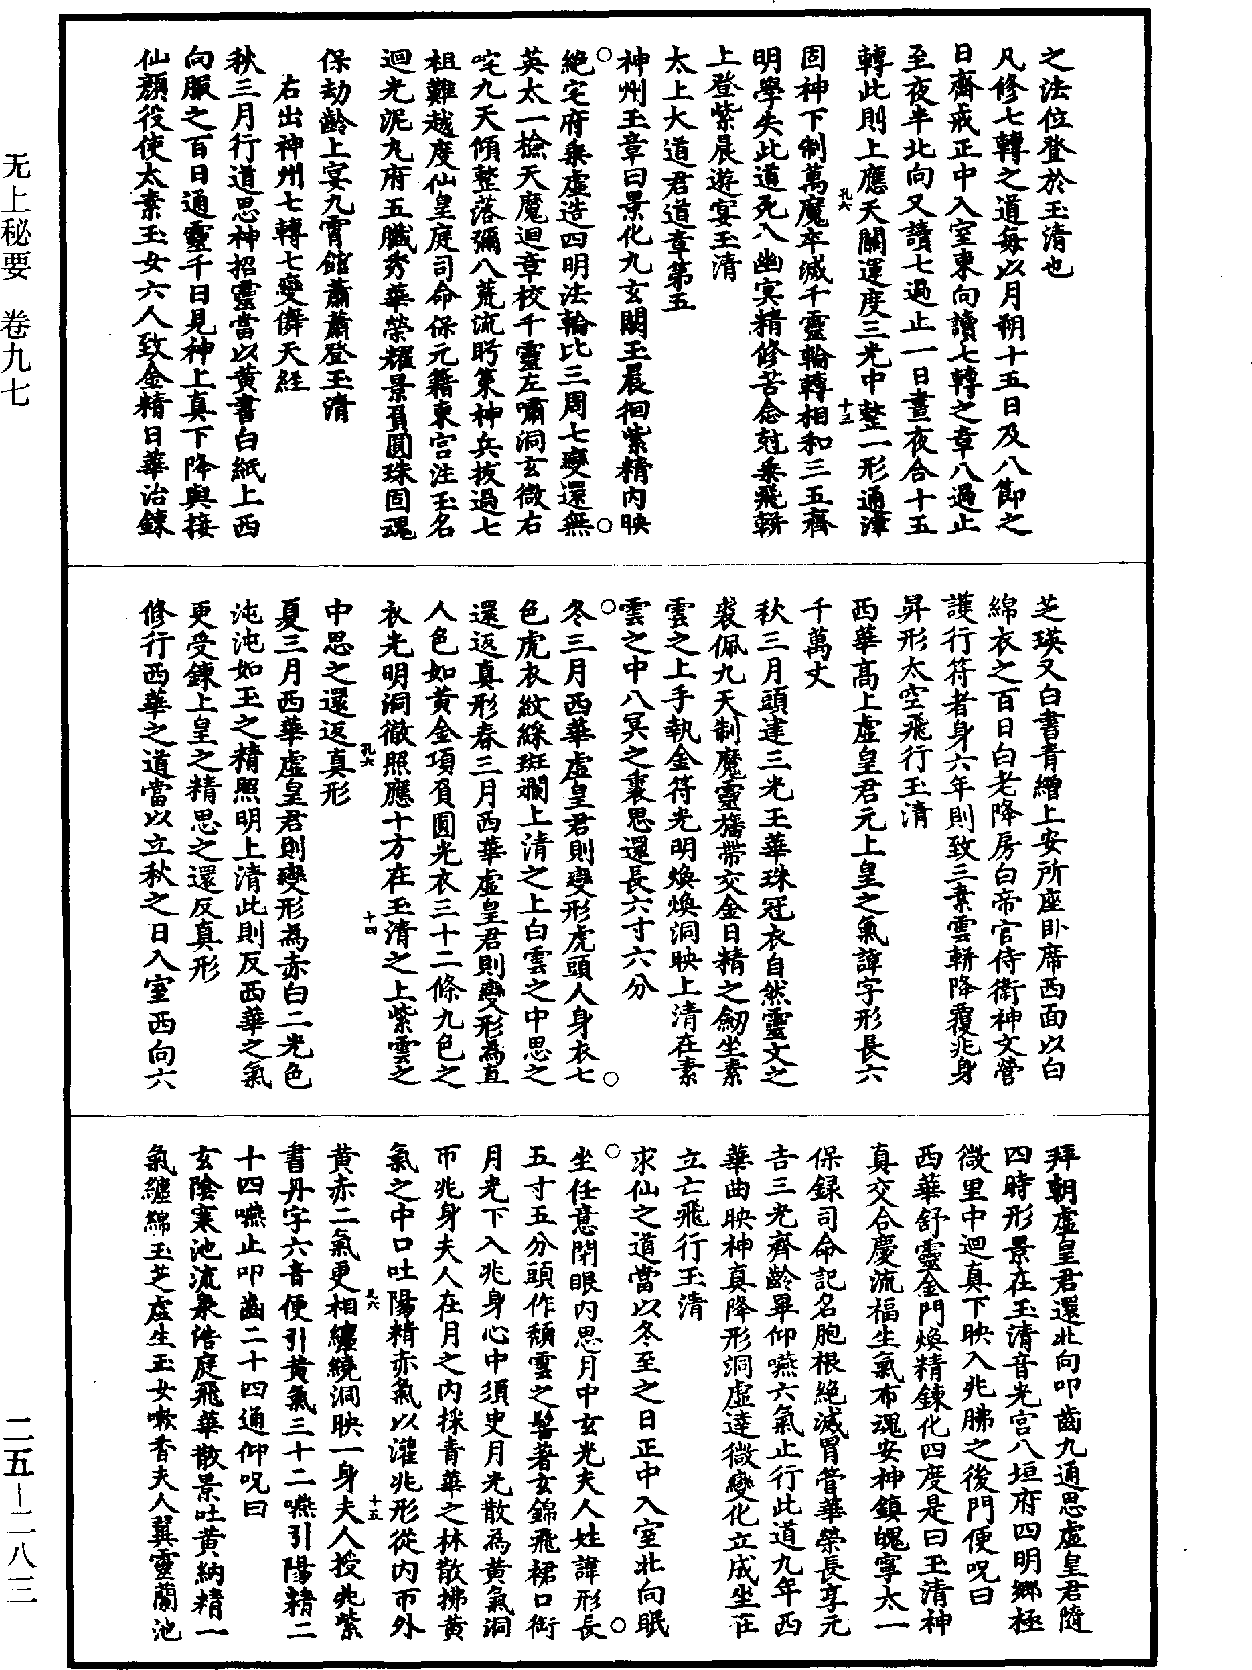 无上秘要　卷九七
之法位登於玉清也
凡修七轉之道每以月朔十五日及八節之
日齋戒正中入室東向讀七轉之章八過止
至夜半北向又讀七過止一日晝夜合十五
轉此則上應天關運度三光中整一形通津
固神下制萬魔卒滅千靈輪轉相和三五齊
明學失此道死入幽冥精修苦念尅乗飛軿
上登紫晨遊宴玉清
太上大道君道章第五
神州玉章曰景化九玄關玉晨徊紫精内映
絕宅府乗虛造四明法輪比三周七變還無
英太一檢天魔迴章校千靈左嘯洞玄微右
咤九天傾整落彌八荒流眄策神兵拔過七
祖難越度仙皇庭司命保元籍東宫注玉名
迴光泥丸府五臟秀華榮耀景負圓珠固魂
保劫齡上宴九霄館蕭蕭登玉清
右出神州七轉七變儛天經
秋三月行道思神招靈當以黄書白紙上西
向服之百日通靈千日見神上真下降與接
仙顏役使太素玉女六人致金精日華治鍊
孔六
十三
芝瑛又白書青繒上安所座卧席西面以白
綿衣之百日白老降房白帝官侍衛神文營
護行符者身六年則致三素雲軿降覆兆身
昇形太空飛行玉清
西華高上虛皇君元上皇之氣諱字形長六
千萬丈
秋三月頭建三光玉華珠冠衣自然靈文之
裘佩九天制魔靈旛帶交金日精之劒坐素
雲之上手執金符光明煥煥洞映上清在素
雲之中八冥之裏思還長六寸六分
冬三月西華虛皇君則變形虎頭人身衣七
色虎衣紋綵斑斕上清之上白雲之中思之
還返真形春三月西華虛皇君則變形為真
人色如黄金項負圓光衣三十二條九色之
衣光明洞徹照應十方在玉清之上紫雲之
中思之還返真形
夏三月西華虛皇君則變形為赤白二光色
沌沌如玉之精照明上清此則反西華之氣
更受鍊上皇之精思之還反真形
修行西華之道當以立秋之日入室西向六
孔六
十四
拜朝虛皇君還北向叩齒九通思虛皇君隨
四時形景在玉清音光宫八垣府四明鄉極
微里中迴真下映入兆胇之後門便呪曰
西華舒靈金門煥精鍊化四度是曰玉清神
真交合慶流福生氣布魂安神鎮魄寧太一
保録司命記名胞根絕滅胃管華榮長享元
吉三光齊齡畢仰嚥六氣止行此道九年西
華曲映神真降形洞虛達微變化立成坐在
立亡飛行玉清
求仙之道當以冬至之日正中入室北向眠
坐任意閉眼内思月中玄光夫人姓諱形長
五寸五分頭作頹雲之髻著玄錦飛裙口銜
月光下入兆身心中須臾月光散為黄氣洞
帀兆身夫人在月之内採青華之林散拂黄
氣之中口吐陽精赤氣以灌兆形從内帀外
黄赤二氣更相纏繞洞映一身夫人授兆紫
書丹字六音便引黄氣三十二嚥引陽精二
十四嚥止叩齒二十四通仰呪曰
玄陰寒池流泉浩庭飛華散景吐黄納精一
氣纏綿玉芝虛生玉女嗽香夫人冀靈蘭池
孔六
十五
二五—二八三